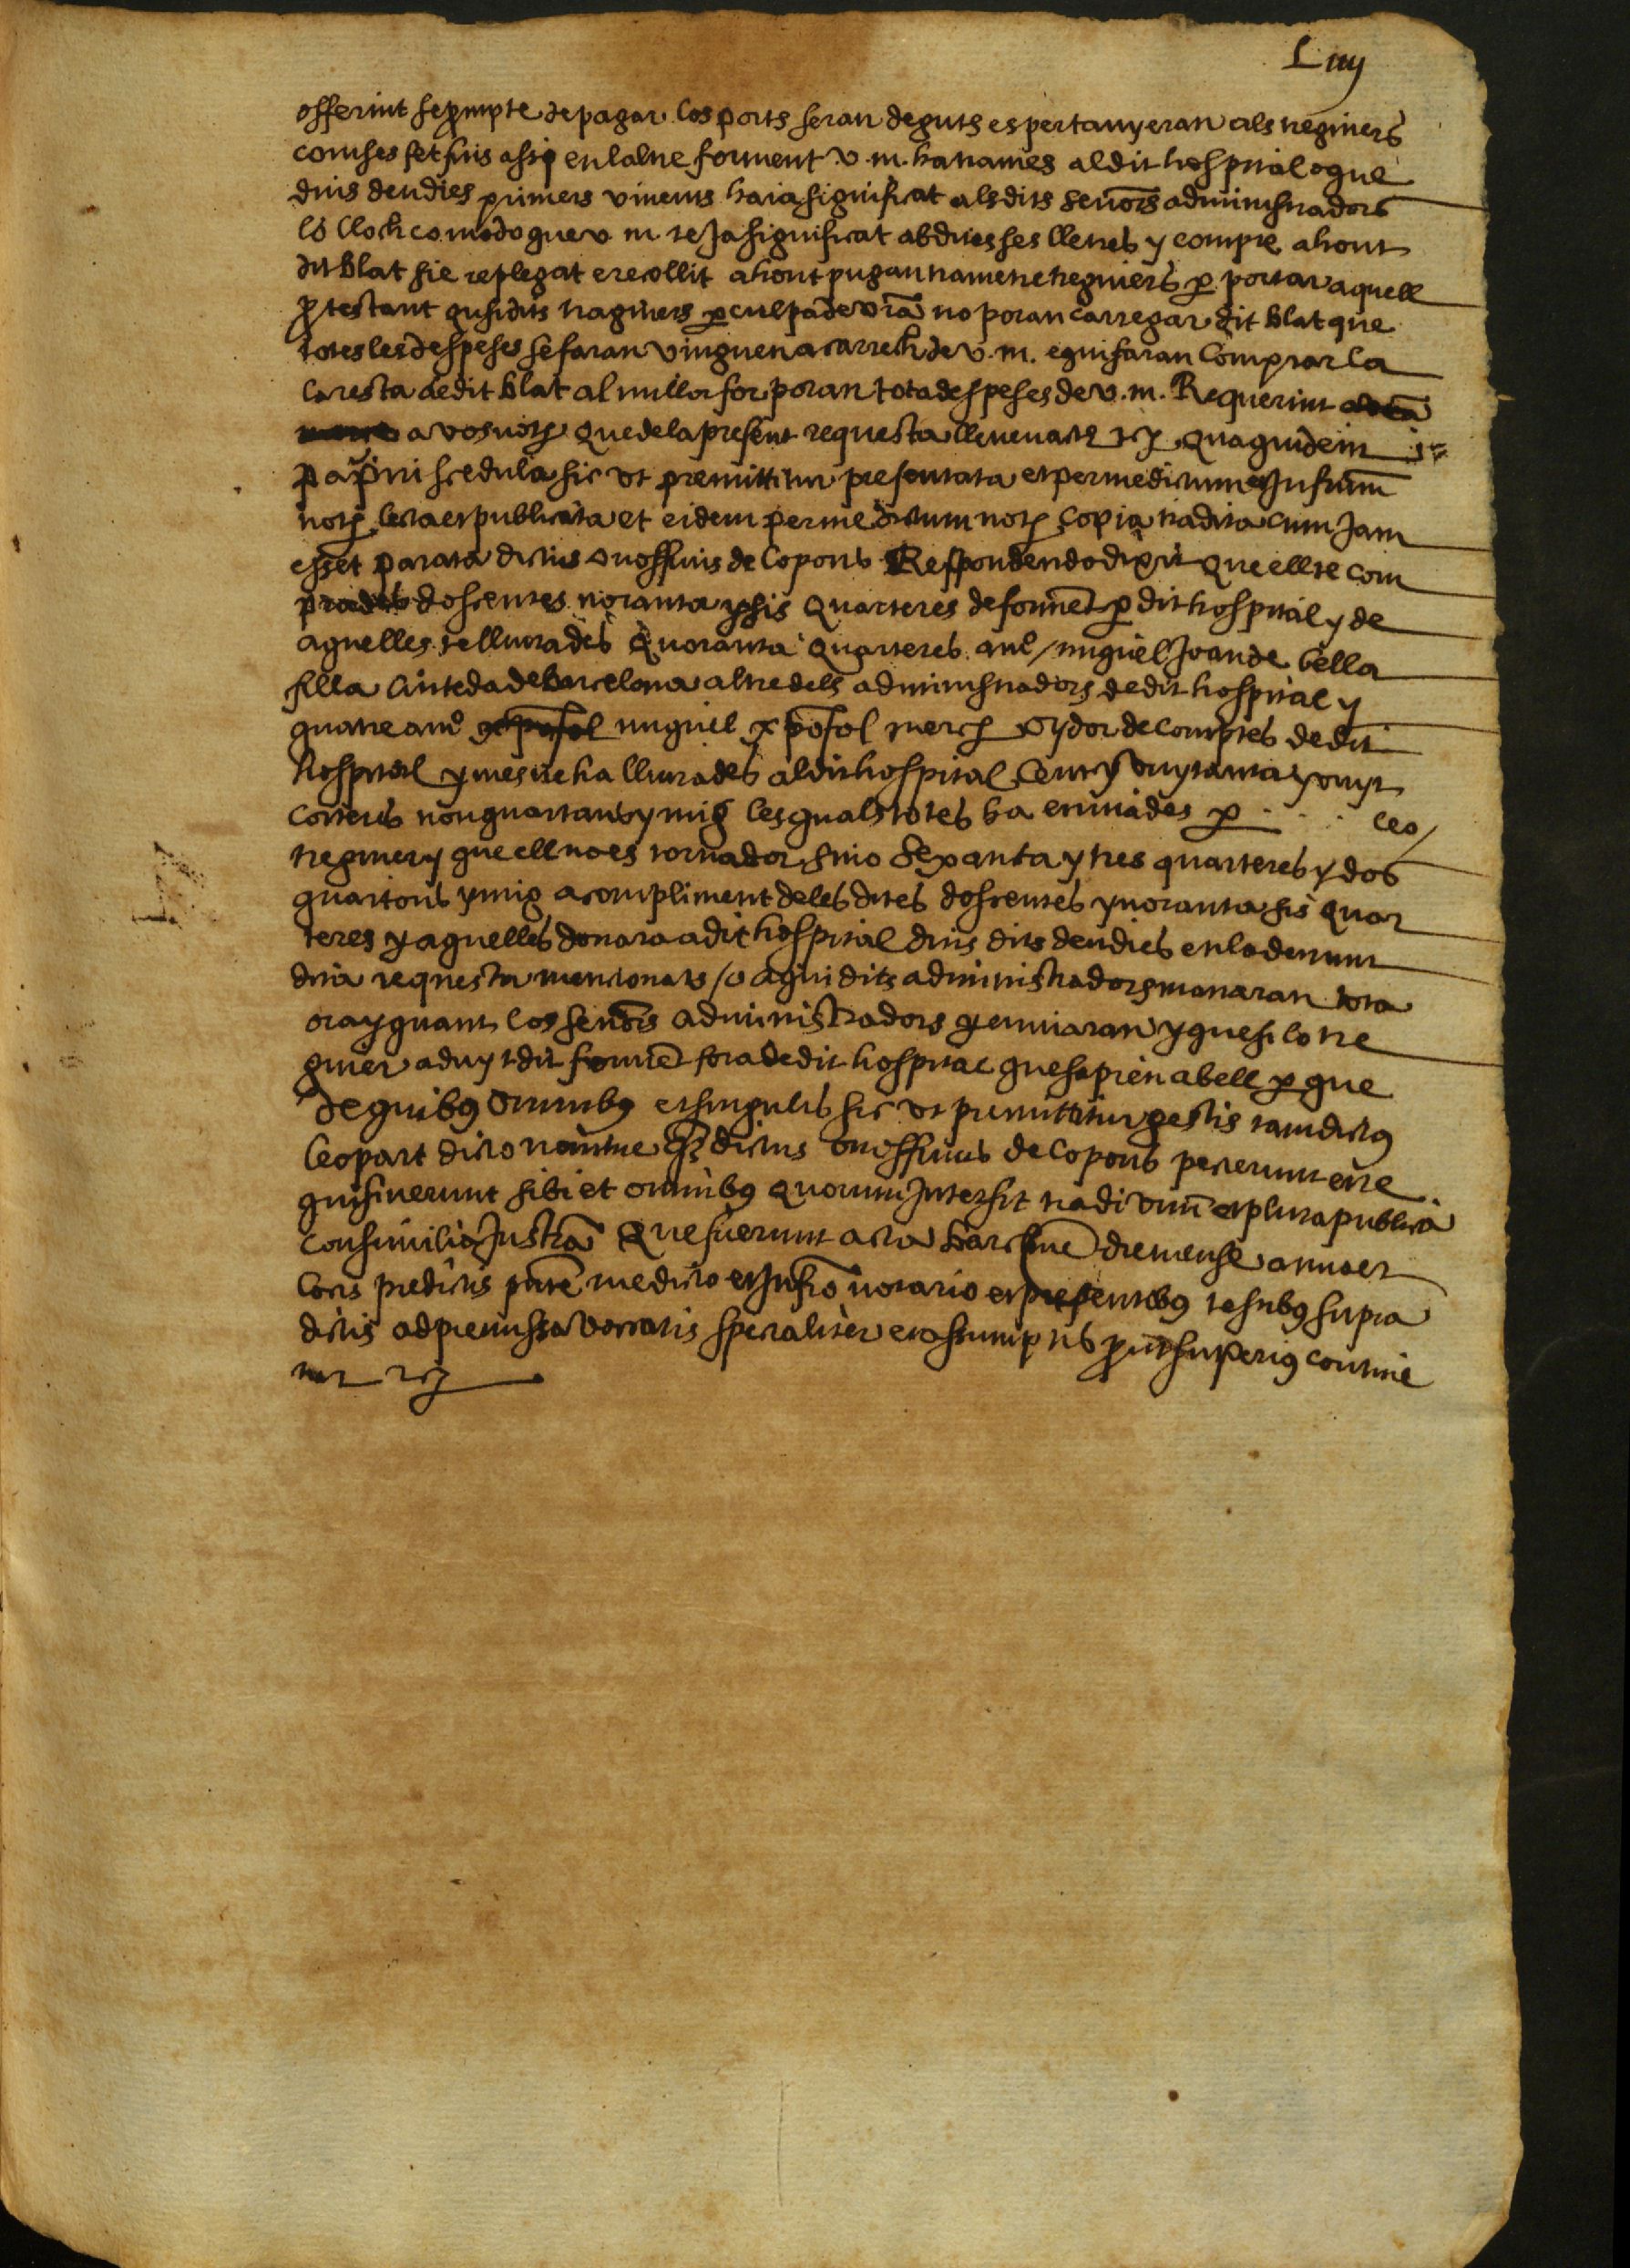 Liiij
offerintse prompte de pagar los ports seran deguts e spertanyeran als traginers
com hes fet fins assi en laltre forment v. m. ha trames al dit hospital o que
dins deu dies primers vinents haia significat als dits senors administradors
lo lloch comodo que v m te ja significat ab dites ses lletres y compte ahont
dit blat sie replegat e recollit ahont pugan trametre treginers per portar aquell
protestant qu si dits traginers per culpa de vra no poran carregar dit blat que
totes les despeses se faran vinguen a carrech de v. m. e qui faran comprar la
la resta de dit blat al millor for poran tota despeses de v. m. Requerint
a vos not que de la present requesta lleveu acte etc. Quaquidem
papiri scedula sic ut premittitur presentata et per me dictum et Infrum
not lecta et publicata et eidem per me dictum not copia tradita cum Jam
esset parata dictus onoffrius de Copons Respondendo dixit que ell te com
prades doscentes noranta y sis quarteres de forment per dit hospital y de
aquelles te lliurades quoranta quarteres a mº / miquel Joan de bella
filla Ciuteda de Barcelona altre dels administradors de dit hospital y
quatre a mº miquel xpofol merch oydor de comptes de dit
hospital y mes ne ha lliurades al dit hospital Cent y vuytanta y vuyt
corteres nou quartans y mig les quals totes ha enviades per . . . . leo /
treginer y que ell no es tornador sino Sexanta y tres quarteres y dos
quartons y mig a compliment de les dites doscentes y noranta sis quar
teres y aquelles donara a dit hospital dins dits deu dies en lo demunt
dita requesta mencionats / o aqui dits administradors manaran tota
ora y quant los senors administradors y enviaran y que si lo tre
giner aduyt dit forment fora de dit hospital que sa prien ab ell per que
De quibus omnibus et singulis sic ut premittitur gestis tam dictus
leopart dicto nomine qz dictus onoffrius de Copons petierunt et re
quisiverunt sibi et omnibus quorum Intersit tradi unum et plura publica
consimilia Instra Que fuerunt acta Barcne die mense anno et
locis predictis pnte me dicto et Infro notario et presentibus testibus supra
dictis ad premissa vocatis specialiter et assumptis prout superius contine
tur etc